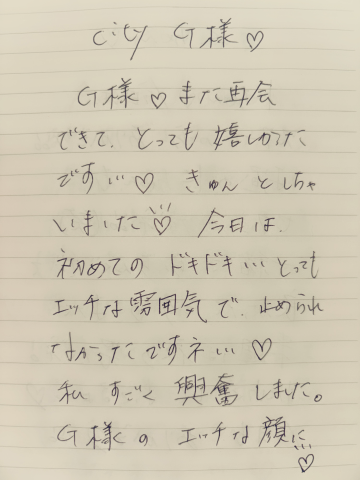 city G様♡
G様♡また再会
できて、とっても嬉しかった
です…♡ きゅんとしちゃ
いました♡ 今日は、
初めてのドキドキ…とっても
エッチな雰囲気で、止められ
なかったですネ…♡
私 すごく興奮しました。
G様くのエッチな顔に…♡